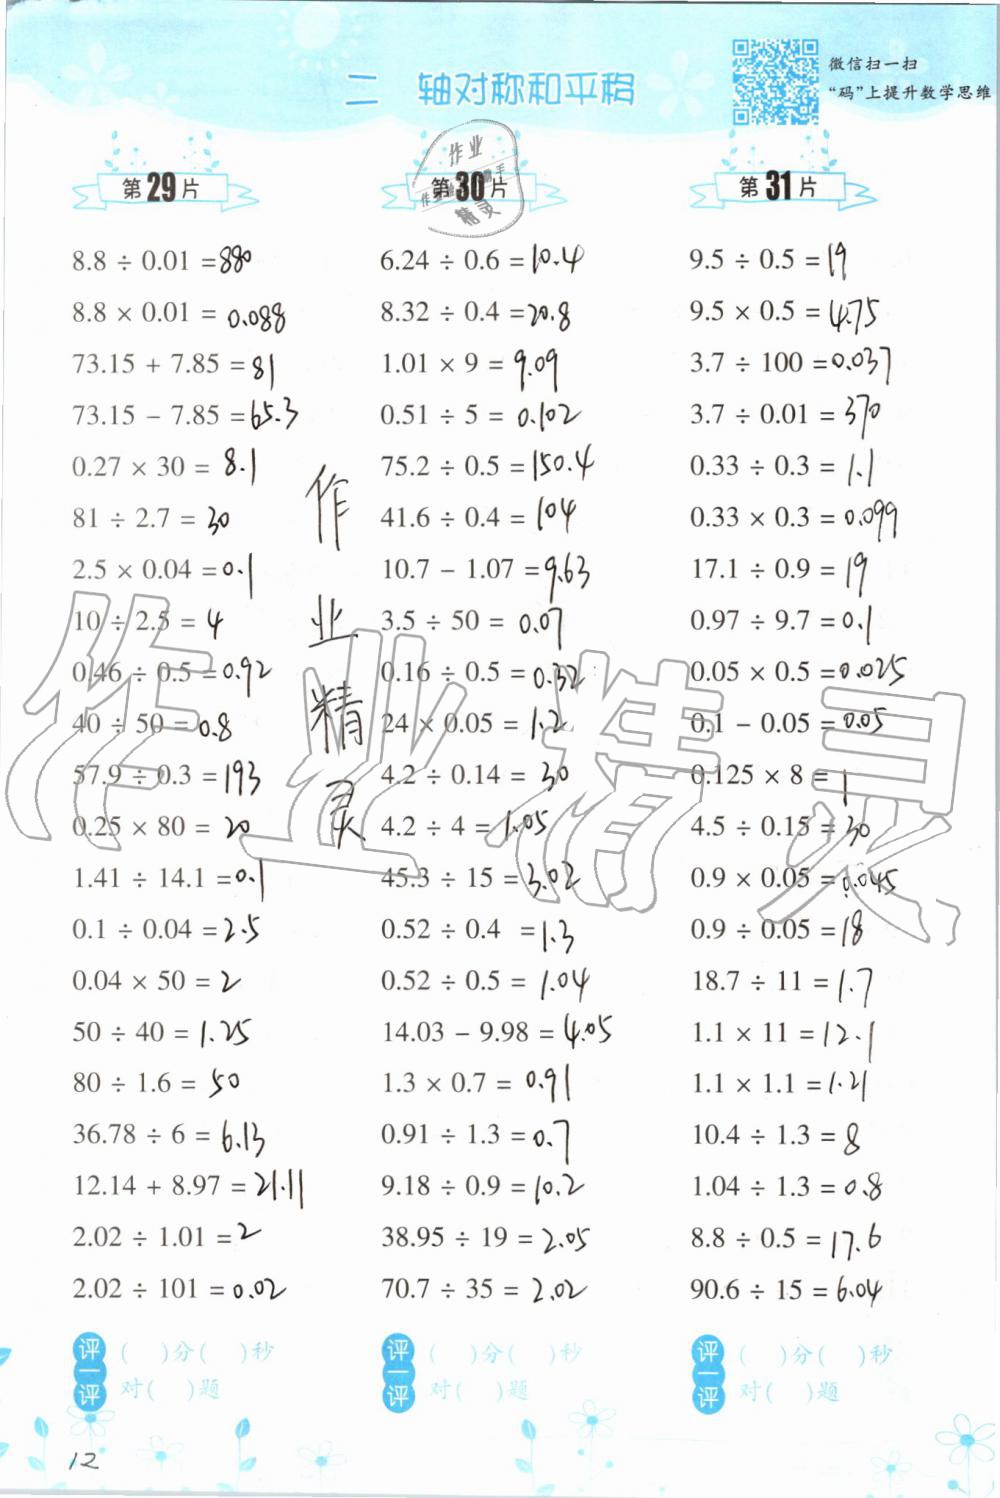 二 轴对称和平移
微信扫一扫
“码”上提升数学思维
第29片
8.8 ÷ 0.01 = 880
8.8 × 0.01 = 0.088
73.15 + 7.85 = 81
73.15 − 7.85 = 65.3
0.27 × 30 = 8.1
81 ÷ 2.7 = 30
2.5 × 0.04 = 0.1
10 ÷ 2.5 = 4
0.46 ÷ 0.5 = 0.92
40 ÷ 50 = 0.8
57.9 ÷ 0.3 = 193
0.25 × 80 = 20
1.41 ÷ 14.1 = 0.1
0.1 ÷ 0.04 = 2.5
0.04 × 50 = 2
50 ÷ 40 = 1.25
80 ÷ 1.6 = 50
36.78 ÷ 6 = 6.13
12.14 + 8.97 = 21.11
2.02 ÷ 1.01 = 2
2.02 ÷ 101 = 0.02
评一评
( )分( )秒
对( )题
第30片
6.24 ÷ 0.6 = 10.4
8.32 ÷ 0.4 = 20.8
1.01 × 9 = 9.09
0.51 ÷ 5 = 0.102
75.2 ÷ 0.5 = 150.4
41.6 ÷ 0.4 = 104
10.7 − 1.07 = 9.63
3.5 ÷ 50 = 0.07
0.16 ÷ 0.5 = 0.32
24 × 0.05 = 1.2
4.2 ÷ 0.14 = 30
4.2 ÷ 4 = 1.05
45.3 ÷ 15 = 3.02
0.52 ÷ 0.4 = 1.3
0.52 ÷ 0.5 = 1.04
14.03 − 9.98 = 4.05
1.3 × 0.7 = 0.91
0.91 ÷ 1.3 = 0.7
9.18 ÷ 0.9 = 10.2
38.95 ÷ 19 = 2.05
70.7 ÷ 35 = 2.02
评一评
( )分( )秒
对( )题
第31片
9.5 ÷ 0.5 = 19
9.5 × 0.5 = 4.75
3.7 ÷ 100 = 0.037
3.7 ÷ 0.01 = 370
0.33 ÷ 0.3 = 1.1
0.33 × 0.3 = 0.099
17.1 ÷ 0.9 = 19
0.97 ÷ 9.7 = 0.1
0.05 × 0.5 = 0.025
0.1 − 0.05 = 0.05
0.125 × 8 = 1
4.5 ÷ 0.15 = 30
0.9 × 0.05 = 0.045
0.9 ÷ 0.05 = 18
18.7 ÷ 11 = 1.7
1.1 × 11 = 12.1
1.1 × 1.1 = 1.21
10.4 ÷ 1.3 = 8
1.04 ÷ 1.3 = 0.8
8.8 ÷ 0.5 = 17.6
90.6 ÷ 15 = 6.04
评一评
( )分( )秒
对( )题
作业精灵
作业精灵
作业
精灵
12